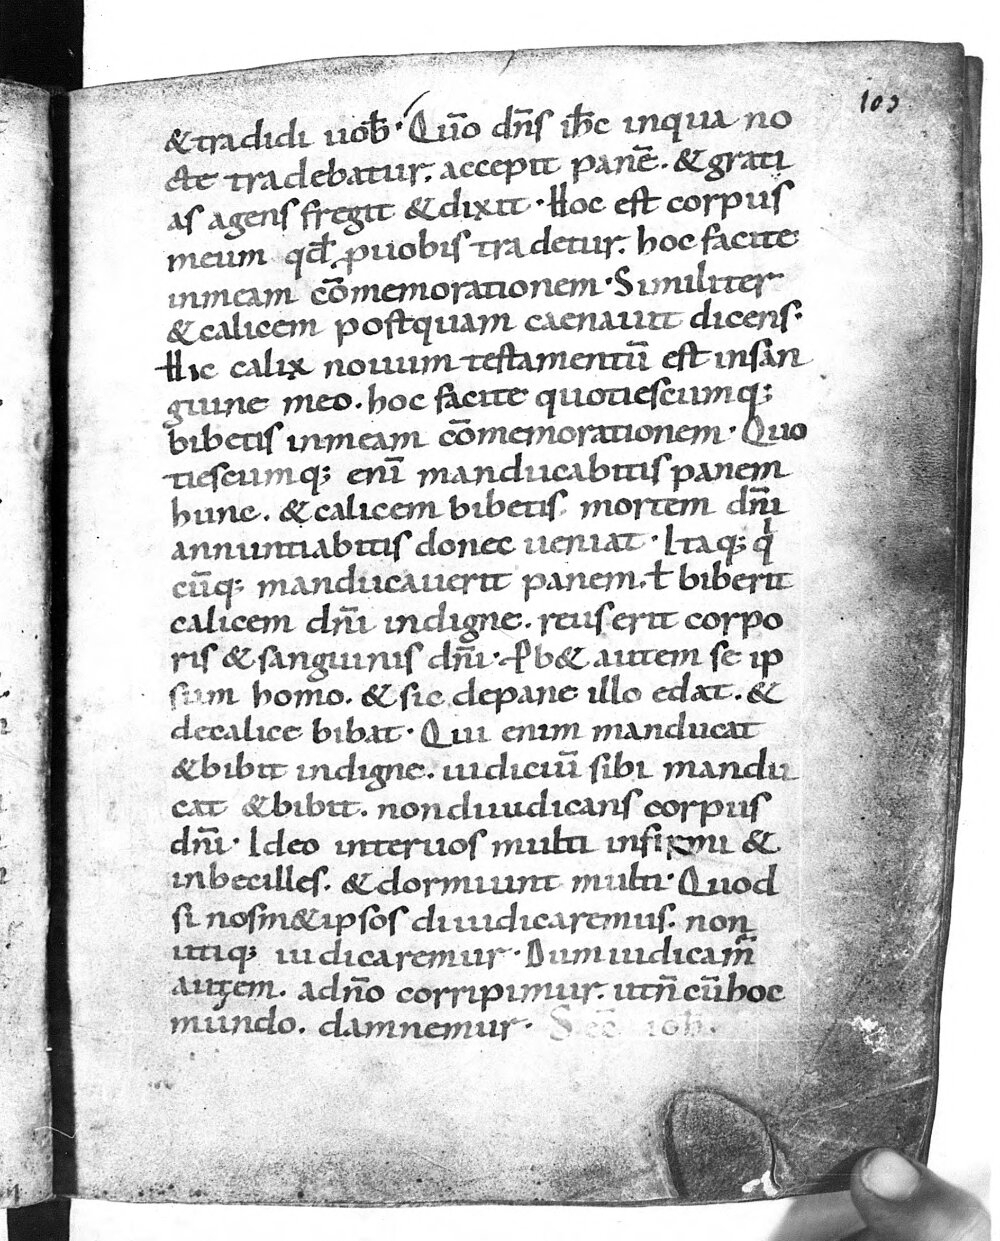 103
& tradidi uob̄. Quō dn̄s ih̄c inqua no
cte tradebatur, accepit panē. & grati
as agens fregit & dixit. Hoc est corpus
meum qđ ꝓuobis tradetur. hoc facite
inmeam cōmemorationem. Similiter
& calicem postquam caenauit dicens.
Hic calix nouum testamentū est insan
guine meo. hoc facite quotiescumq;
bibetis inmeam cōmemorationem. Quo
tiescumq; enī manducabitis panem
hunc. & calicem bibetis. mortem dn̄i
annuntiabitis donec ueniat. Itaq; q
cūq; manducauerit panem. ł biberit
calicem dn̄i indigne. reus erit corpo
ris & sanguinis dn̄i. Pb& autem se ip
sum homo. & sic depane illo edat. &
decalice bibat. Qui enim manducat
& bibit indigne. iudiciū sibi mandu
cat & bibit. non diiudicans corpus
dn̄i. Ideo interuos multi infirmi &
inbecilles. & dormiunt multi. Quod
si nosm&ipsos diiudicaremus. non
utiq; iudicaremur. Dum iudicam̄
autem. adn̄o corripimur. utn̄ cūhoc
mundo. damnemur. Sec̄ ioh̄.